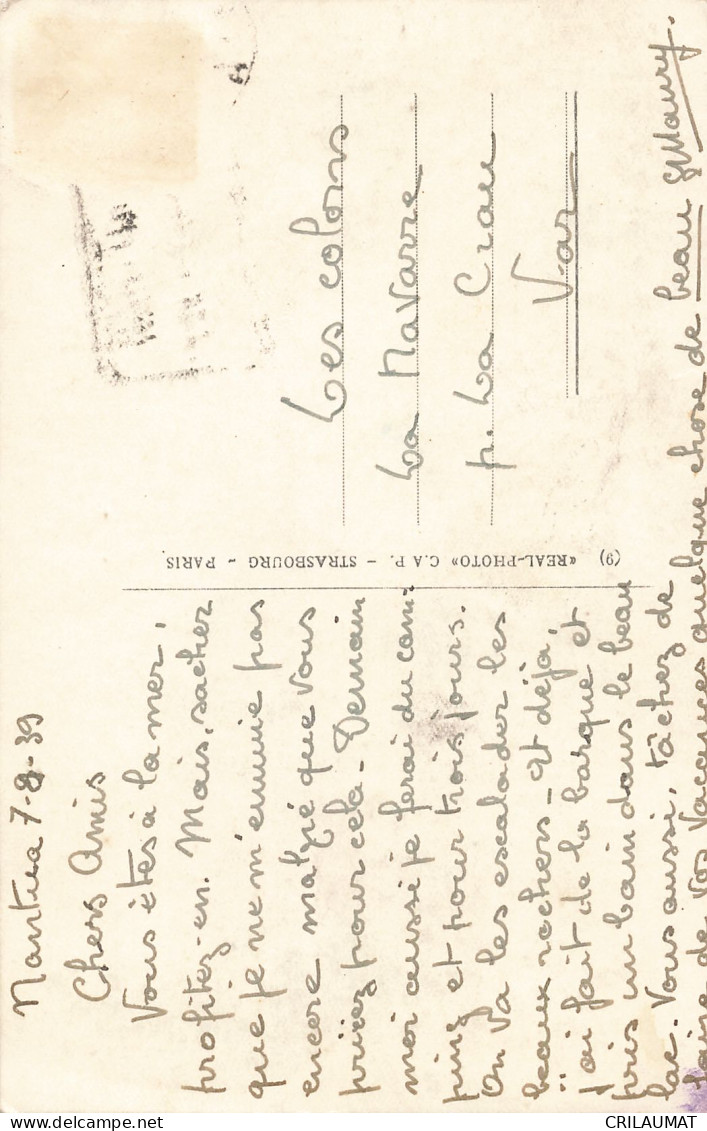 Nantua 7-8-39
Chers Amis
Vous êtes à la mer,
profitez-en. Mais, sachez
que je ne m'ennuie pas
encore malgré que vous
priiez pour cela. Demain
moi aussi je ferai du cam-
ping et pour trois jours.
On va les escalader les
beaux rochers - et déjà,
j'ai fait de la barque et
pris un bain dans le beau
lac. Vous aussi, tâchez de
faire de vos vacances quelque chose de beau
(9) «REAL-PHOTO» C.A P. – STRASBOURG - PARIS
Les colons
La Navarre
p. La Crau
Var
CRILAUMAT